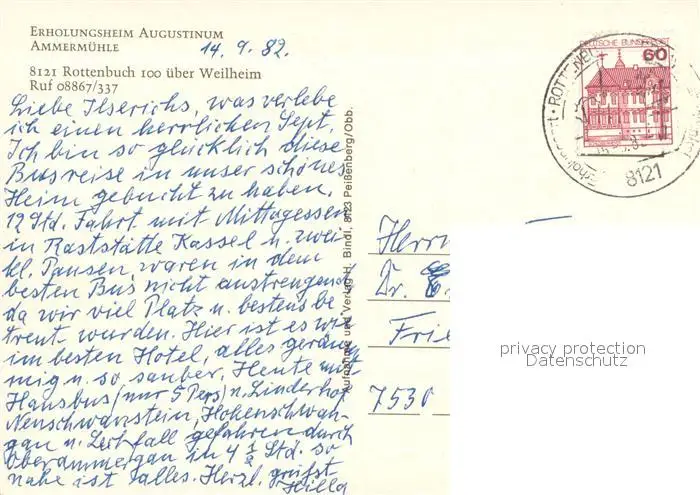 Erholungsheim Augustinum
Ammermühle
14. 9. 82.
8121 Rottenbuch 100 über Weilheim
Ruf 08867/337
Liebe Ilserichs, was verlebe
ich einen herrlichen Sept.
Ich bin so glücklich diese
Busreise in unser schönes
Heim gebucht zu haben.
12 Std. Fahrt mit Mittagessen
in Raststätte Kassel u. zwei
kl. Pausen, waren in dem
besten Bus nicht anstrengend
da wir viel Platz u. bestens be
treut wurden. Hier ist es wie
im besten Hotel, alles geräu
mig u. so sauber. Heute mit
Hausbus (nur 5 Pers) n. Linderhof
Neuschwanstein, Hohenschwan-
gau u. Lechfall gefahren durch
Oberammergau in 4 1/2 Std. so
nahe ist alles. Herzl. grüßt
Hilla
Aufnahme und Verlag H. Bindl, 8123 Peißenberg/Obb.
DEUTSCHE BUNDESPOST
60
8121
Herrn
Dr.
Frie
7530
privacy protection
Datenschutz